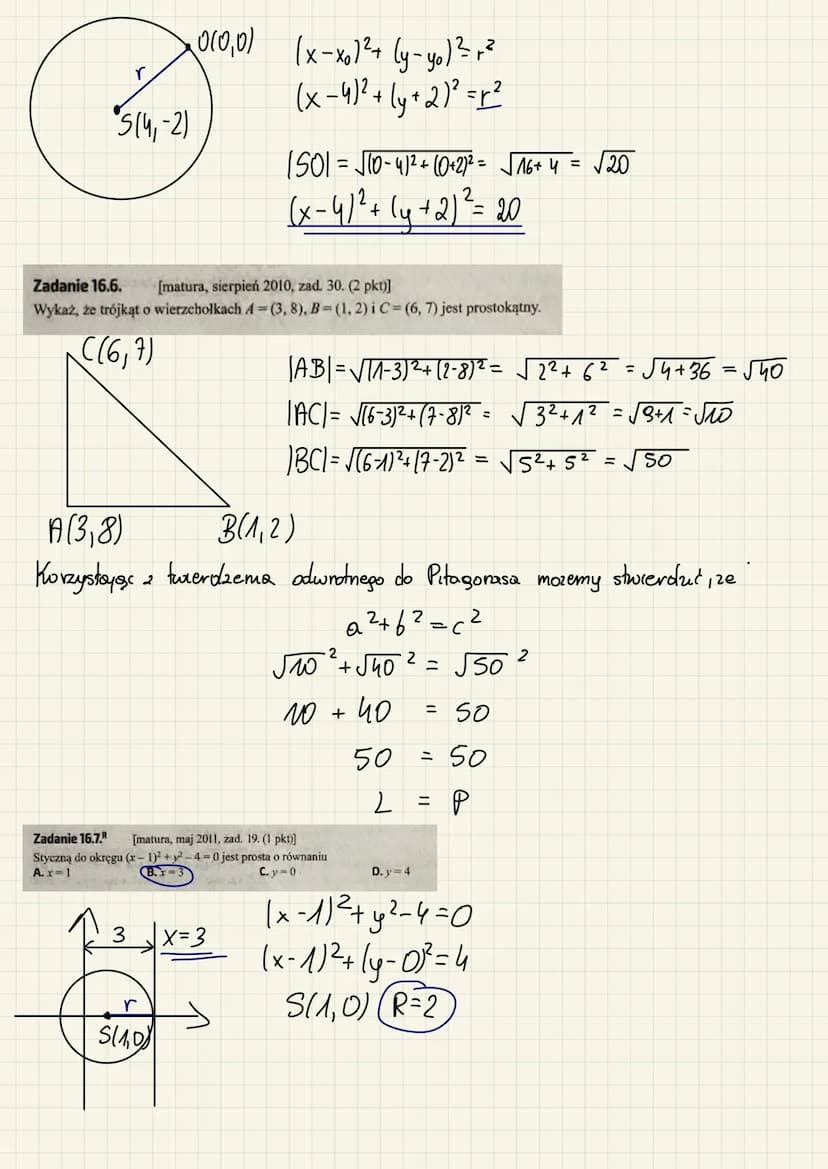 O(0,0)
r
S(4,-2)
(x-x₀)²+ (y-y₀)²=r²
(x-4)²+(y+2)²=r²
|SO| = √(0-4)²+(0+2)² = √16+4 = √20
(x-4)²+(y+2)²= 20
Zadanie 16.6. [matura, sierpień 2010, zad. 30. (2 pkt)]
Wykaż, że trójkąt o wierzchołkach A = (3, 8), B = (1, 2) i C = (6, 7) jest prostokątny.
C(6,7)
A(3,8) B(1,2)
|AB|=√(1-3)²+(2-8)² = √2²+6² = √4+36 = √40
|AC|= √(6-3)²+(7-8)² = √3²+1² = √9+1 = √10
|BC|= √(6-1)²+(7-2)² = √5²+5² = √50
Korzystając z twierdzenia odwrotnego do Pitagorasa możemy stwierdzić, że
a²+b²=c²
√10²+√40² = √50²
10 + 40 = 50
50 = 50
L = P
Zadanie 16.7.ᴿ [matura, maj 2011, zad. 19. (1 pkt)]
Styczną do okręgu (x – 1)² + y² – 4 = 0 jest prosta o równaniu
A. x = 1 B. x = 3 C. y = 0 D. y = 4
3
x=3
r
S(1,0)
(x-1)²+y²-4=0
(x-1)²+(y-0)²=4
S(1,0) R=2